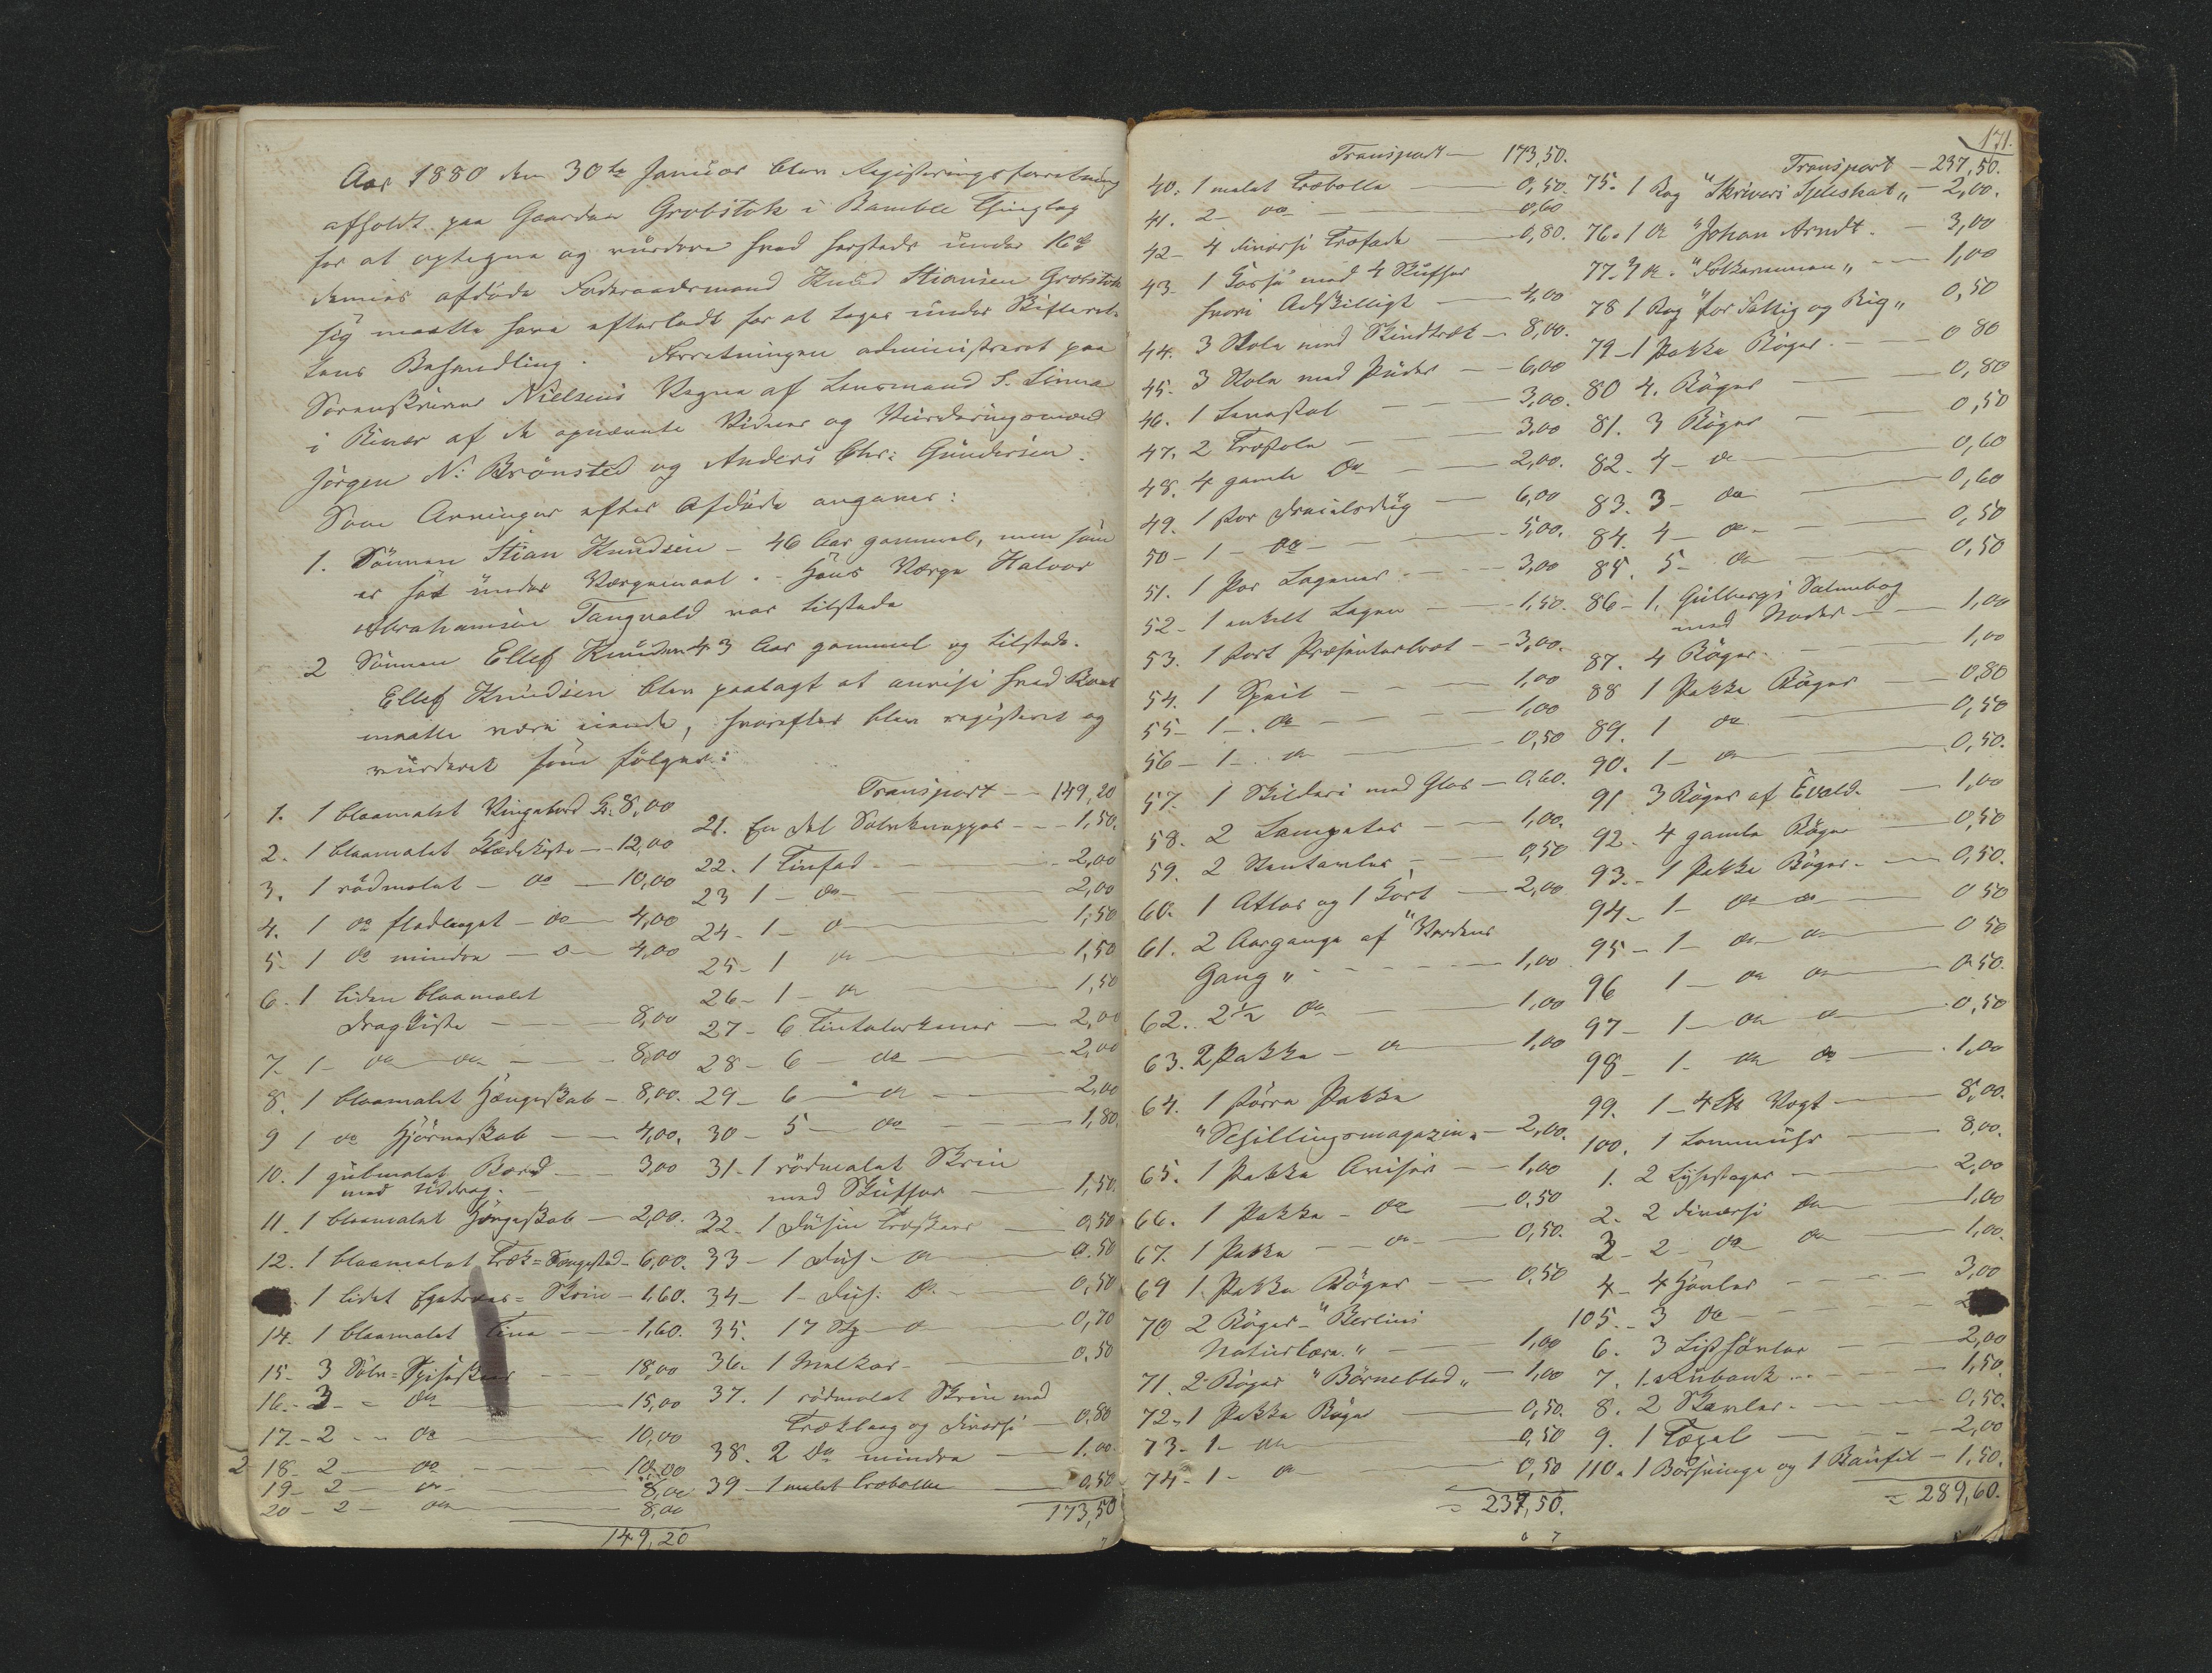 Aar 1880 den 30te Januar blev Registreringsforretning
afholdt paa Gaarden Grobstok i Bamble Thinglag
for at optegne og vurdere hvad herstede under 16de
dennes afdøde Føderaadsmand Knud Stiansen Grobstok
sig maatte have efterladt for at tages under Skifteret-
tens Behandling. Forretningen administreret paa
Sorenskriver Nielsens Vegne af Lensmand S. Linna
i Binær af de opnævnte Vidner og Vurderingsmænd
Jørgen N: Brønsted og Anders Chr: Gundersen.
Som Arvinger efter Afdøde angaves:
1. Sønnen Stian Knudsen - 46 Aar gammel, men som
er sat under Værgemaal. - Hans Værge Halvor
Abrahamsen Tangvald var tilstede
2 Sønnen Ellef Knudsen 43 Aar gammel og tilstede.
Ellef Knudsen blev paalagt at anvise hvad Boet
maatte være eiende, hvorefter blev registreret og
vurderet som følger:
1. 1 blaamalet Vingebord Kr. 8,00
2. 1 blaamalet Klædekiste - 12,00
3. 1 rødmalet - do - 10,00
4. 1 do fladlaaget - do 4,00
5. 1 do mindre - do 4,00
6. 1 liden blaamalet
Dragkiste - 8,00
7. 1 - do do - 8,00
8. 1 blaamalet Hængeskab - 8,00.
9 1 do Hjørneskab - 4,00.
10. 1 gulmalet Bord - 3,00
med Uddrag. -
11. 1 blaamalet Hængeskab - 2,00.
12. 1 blaamalet Træk=Sengested - 6,00.
1 lidet Egetræes=Skrin - 1,60.
14. 1 blaamalet Tine - 1,60.
15 - 3 Sølv=Spiseskeer - 18,00
16. - 3 - do 15,00
17. - 2 - do 10,00
2 18 - 2 - do 10,00
19 - 2 - do 8,00
20 - 2 - do 8,00
149,20
Transport - 149,20
21. En Del Sølvknapper - 1,50.
22. 1 Tinfad - 2,00
23 1 - do 2,00
24 - 1 - do 1,50
25 - 1 do 1,50
26 - 1 - do 1,50
27 - 6 Tintalerkener - 2,00
28 - 6 do - 2,00
29 - 6 - do 2,00
30 - 5 - do 1,80.
31 - 1 rødmalet Skrin
med Skuffer - 1,50.
32 - 1 Dusin Træskeer - 0,50
33 - 1 Dus. - do 0,50
34 - 1 - Dus. do - 0,50
35. 17 Stk - do 0,70
36. 1 Melkar - 0,50
37. 1 rødmalet Skrin med
Træklaag og diverse - 0,80
38. 2 Do mindre - 1.00
39 - 1 malet Træbolle - 0,50
173,50
171.
Transport - 173,50.
40. 1 malet Træbolle - 0,50.
41. 2 - do - 0,60
42 - 4 diverse Træfade - 0,80.
43. 1 Kasse med 4 Skuffer
hvori Adskilligt - 4,00
44. 3 Stole med Skindtræk - 8,00.
45. 3 Stole med Puder - 6,00
46. 1 Lænestol - 3,00.
47. 2 Træstole - 3,00
48. 4 gamle Do - 2,00.
49. 1 Par Dreielsdug - 6,00
50 - 1 - do - 5,00.
51. 1 Par Lagener - 3,00
52 - 1 enkelt Lagen - 1,50.
53. 1 sort Præsenterbræt - 3,00.
54. 1 Speil - 1,00
55 - 1 - do - 1,00
56 - 1 - do 0,50
57. 1 Skilderi med Glas - 0,60.
58. 2 Lampetter - 1,00.
59. 2 Stentavler - 0,50
60. 1 Atlas og 1 Kart - 2,00.
61. 2 Aargange af "Verdens
Gang" - 1,00
62. 2½ do - 1,00
63. 2 Pakke - do 1,00
64. 1 større Pakke
"Schillingsmagazin" - 2,00.
65. 1 Pakke Aviser - 1,00
66. 1 Pakke - do 0,50
67. 1 Pakke - do - 0,50.
69 1. Pakke Bøger - 0,50
70 2 Bøger - "Berlins
Naturlære." - 1,00
71. 2 Bøger "Børneblad" - 1,00
72 - 1 Pakke Bøger 0,50.
73 - 1 - do 0,50
74 - 1 - do 0,50
= 237,50.
Transport - 237,50.
75. 1 Bog "Skrivers Sjeleskat" - 2,00.
76. 1 do "Johan Arndt. - 3,00
77. 4 do. "Folkevennen" - 1,00
78 1 Bog "for Fattig og Rig" 0,50
79 - 1 Pakke Bøger. - 0 80
80 4. Bøger - 0,80
81. 3 Bøger 0,50
82. 4 - do 0,60
83. 3 - do 0,60
84. 4 - do - 0,50
85. 5 - do 0,50
86 - 1, Gulbergs Salmebog
med Noder - 1,00
87. 4 Bøger. - 1,00
88 1 Pakke Bøger - 0,80
89. 1 do 0,50
90. 1 - do 0,50.
91 3 Bøger af Evald. - 1,00
92. 4 gamle Bøger 0,50
93. - 1 Pakke Bøger. - 0,50.
94 - 1 - do do 0 50
95 - 1 - do do 0 50
96 1 - do do 0,50.
97 - 1 - do do 0,50
98 - 1 - do do 1,00
99. 1 - 4 Vogt - 8,00.
100. 1 Lommeuhr - 8,00.
1. 2 Lysestager - 2,00
2. 2 diverse do 1,00
3 - 2 - do do 1,00.
4 - 4 Høvler - 3,00
105. - 3 do -
6. 3 Listhøvler - 2,00
7. 1. Skubank - 1,50.
8. 2 Skavler. - 0,50.
9. 1 Tægal - 2,00
110. 1 Borsvinge og 1 Baufil - 1,50.
= 289,60.